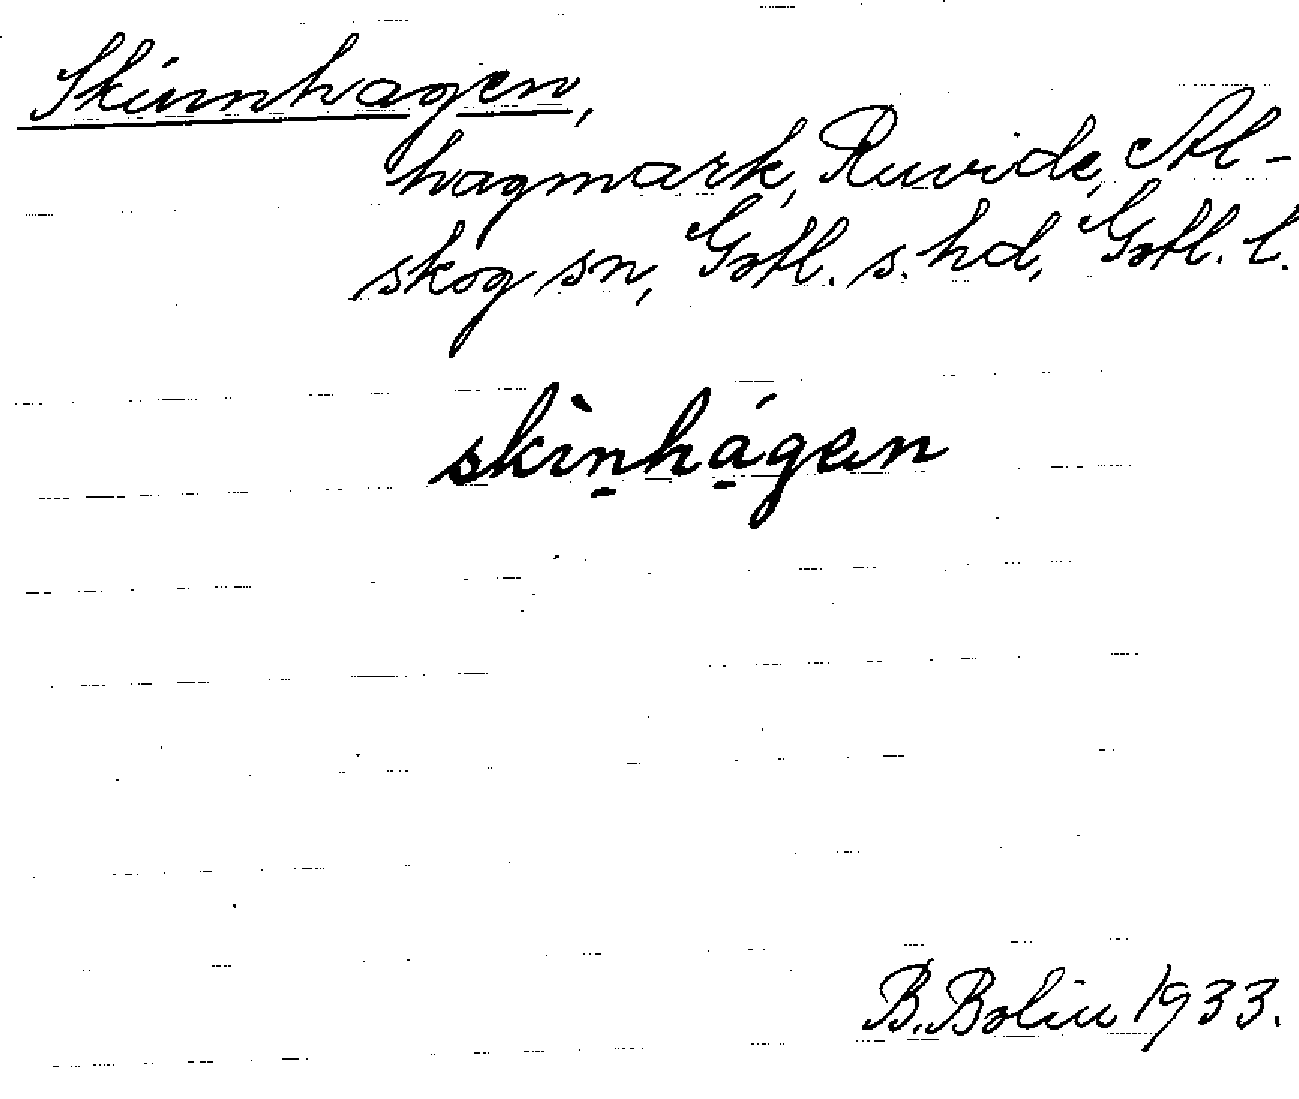 Skinnhagen,
hagmark, Ruvide, Al-
skog sn, Gotl. s. hd, Gotl. l.
skìn̠há̠gen
B. Bolin 1933.